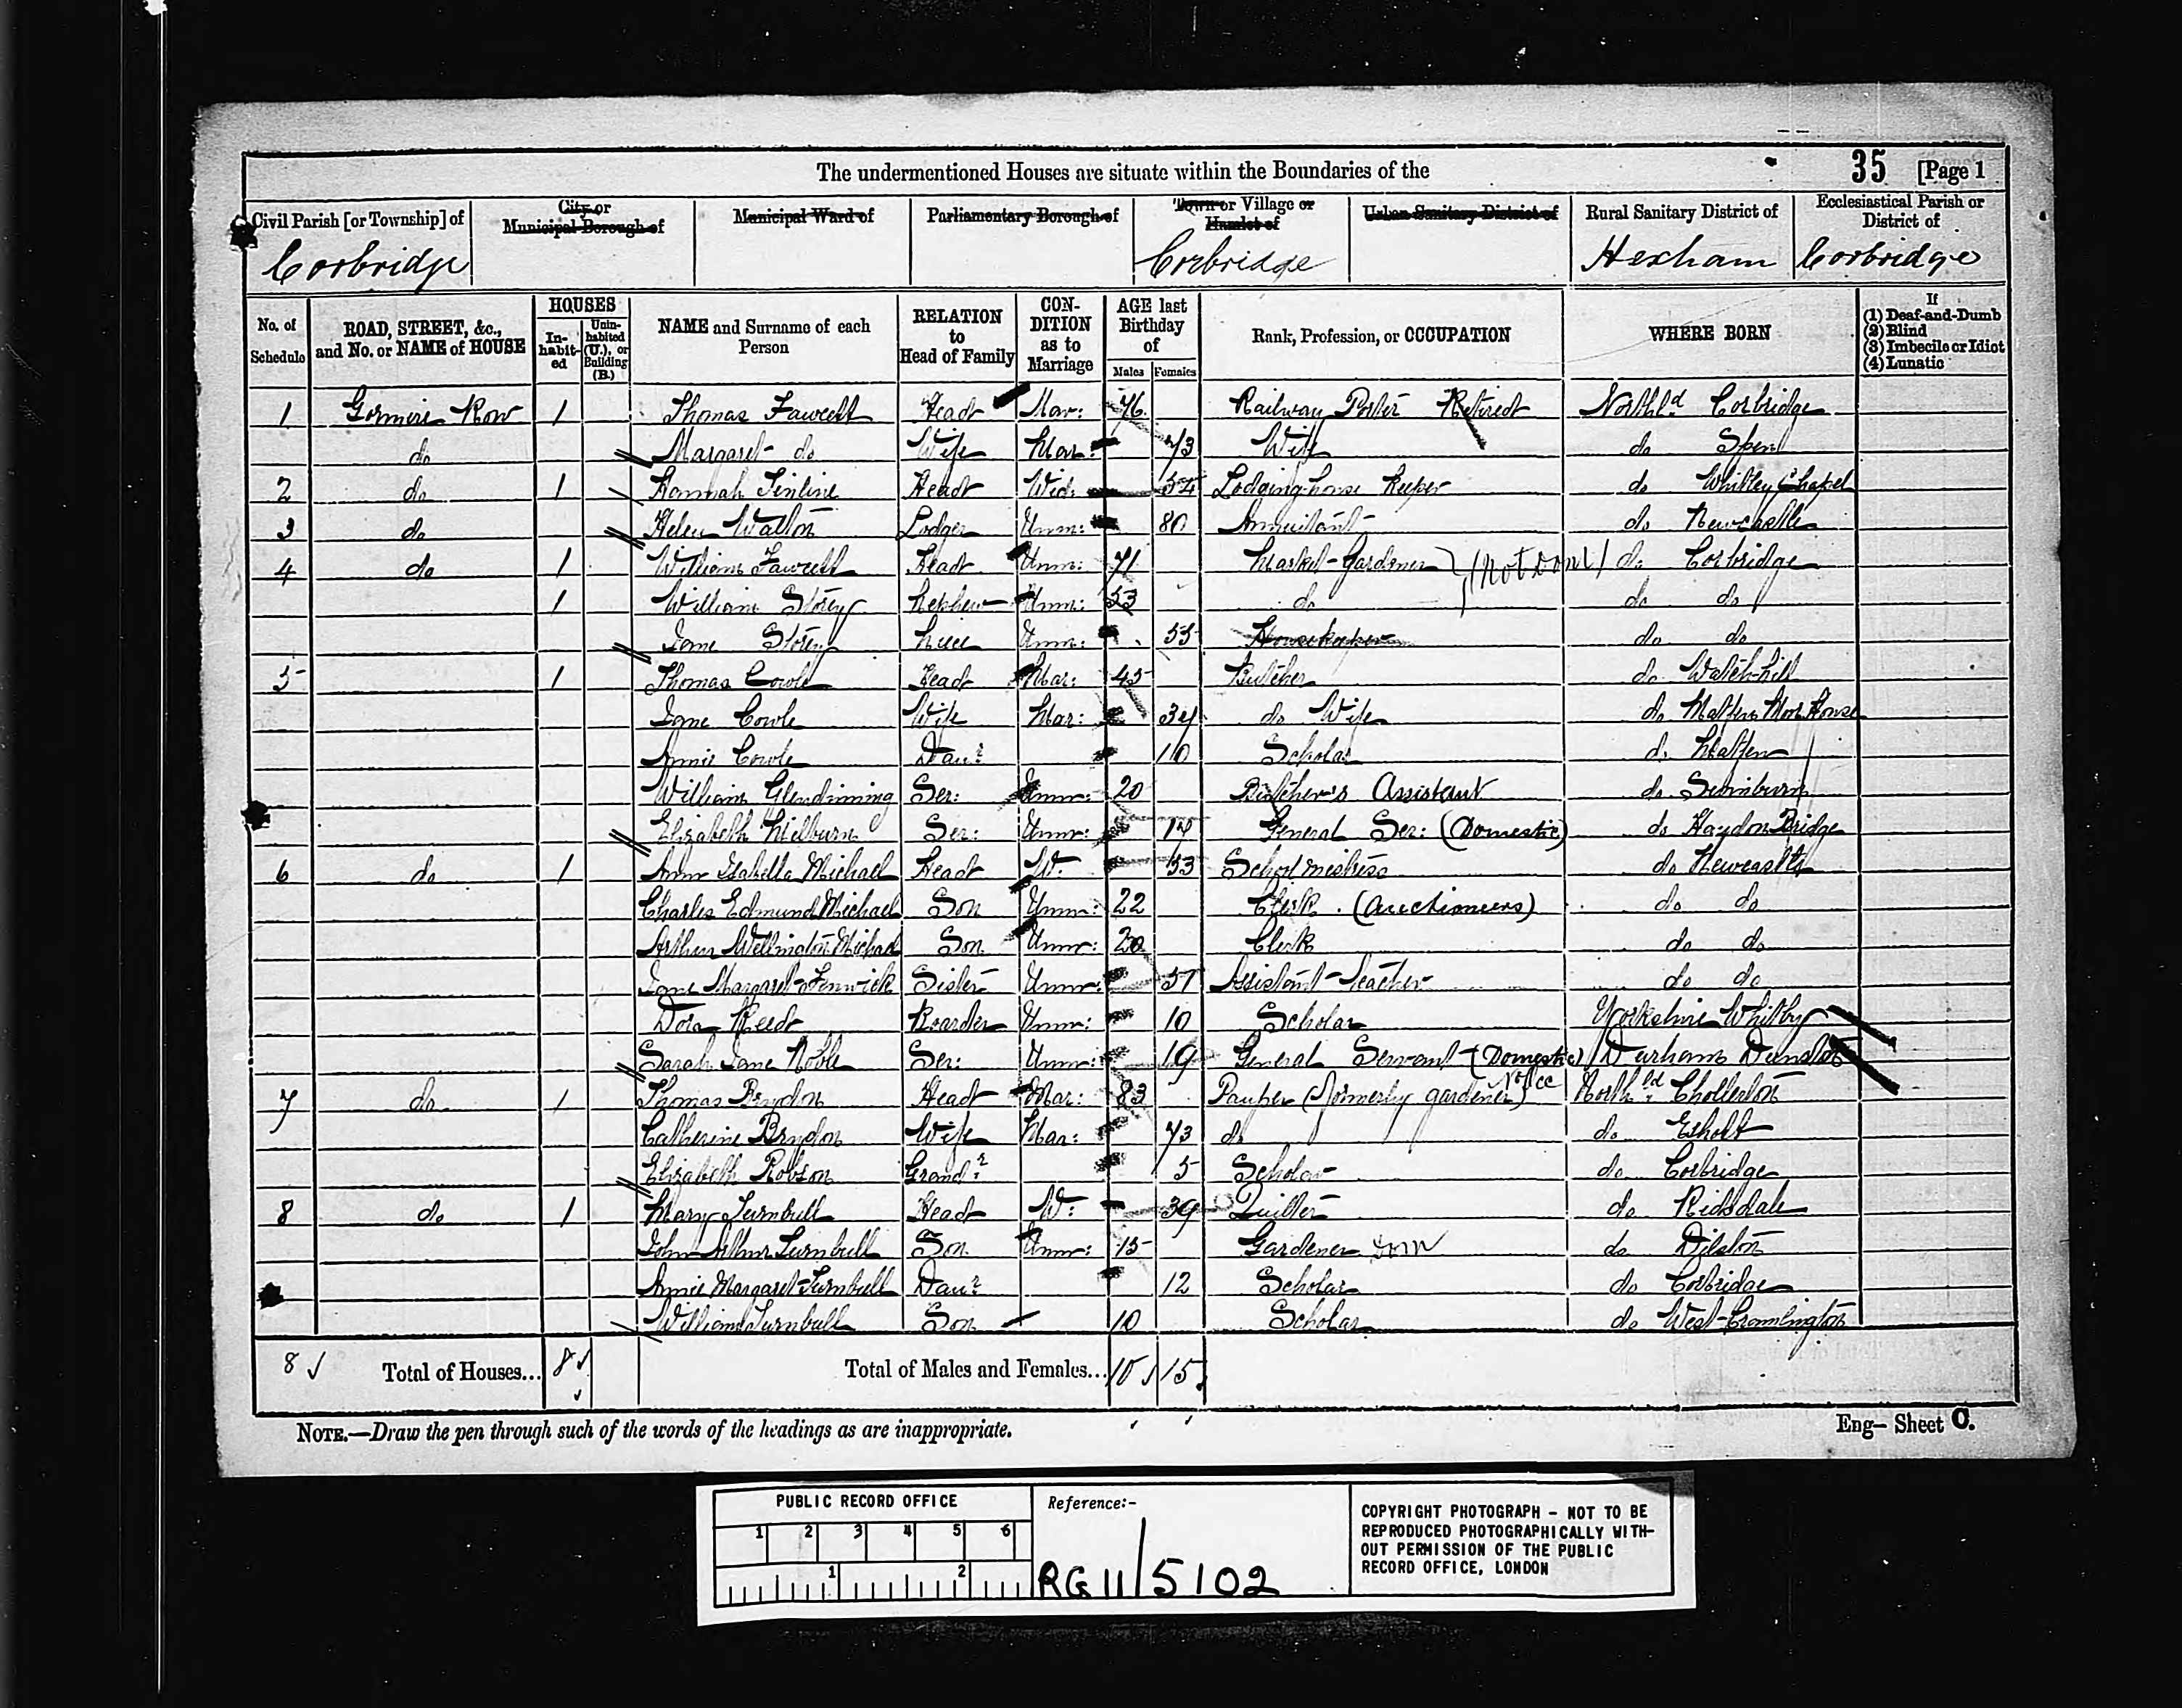 The undermentioned Houses are situate within the Boundaries of the 35 [Page 1
Civil Parish [or Township] of City or Municipal Borough of Municipal Ward of Parliamentary Borough of Town or Village or Hamlet of Urban Sanitary District of Rural Sanitary District of Ecclesiastical Parish or District of
Corbridge Corbridge Hexham Corbridge
No. of Schedule ROAD, STREET, &c., and No. or NAME of HOUSE HOUSES In-habit-ed Unin-habited (U.), or Building (B.) NAME and Surname of each Person RELATION to Head of Family CON-DITION as to Marriage AGE last Birthday of Males Females Rank, Profession, or OCCUPATION WHERE BORN If (1) Deaf-and-Dumb (2) Blind (3) Imbecile or Idiot (4) Lunatic
1 Gormire Row 1 Thomas Fawcett Head Mar: 76 Railway Porter Retired Northld Corbridge
do Margaret do Wife Mar: 73 Wife do Spen
2 do 1 Hannah Tinline Head Wid: 54 Lodging-house Keeper do Whitley Chapel
3 do Helen Walton Lodger Unm: 80 Annuitant do Newcastle
4 do 1 William Fawcett Head Unm: 71 Market-Gardener (not Dom) do Corbridge
1 William Storey Nephew Unm: 53 do do do
Jane Storey Niece Unm: 55 Housekeeper do do
5 1 Thomas Cowle Head Mar: 45 Butcher do Watch-hill
Jane Cowle Wife Mar: 34 do Wife do Matfen Moor House
Annie Cowle Daur 10 Scholar do Matfen
William Glendinning Ser: Unm: 20 Butcher's Assistant do Simonburn
Elizabeth Milburn Ser: Unm: 17 General Ser: (Domestic) do Haydon Bridge
6 do 1 Ann Isabella Michael Head W. 53 School mistress do Newcastle
Charles Edmund Michael Son Unm: 22 Clerk (Auctioneers) do do
Arthur Wellington Michael Son Unm: 20 Clerk do do
Jane Margaret Fenwick Sister Unm: 57 Assistant-teacher do do
Dora Reed Boarder Unm: 10 Scholar Yorkshire Whitby
Sarah Jane Noble Ser: Unm: 19 General Servant (Domestic) Durham Dunston
7 do 1 Thomas Brydon Head Mar: 83 Pauper (formerly gardener) No Occ Northld Chollerton
Catherine Brydon Wife Mar: 73 do do Eshott
Elizabeth Robson Grandr 5 Scholar do Corbridge
8 do 1 Mary Turnbull Head W: 39 Quilter do Ridsdale
John Arthur Turnbull Son Unm: 15 Gardener Dom do Dilston
Annie Margaret Turnbull Daur 12 Scholar do Corbridge
William Turnbull Son 10 Scholar do West-Cramlington
8 Total of Houses... 8 Total of Males and Females... 10 15
NOTE.—Draw the pen through such of the words of the headings as are inappropriate. Eng— Sheet C.
PUBLIC RECORD OFFICE
1 2 3 4 5 6
1 2
Reference:-
RG 11/5102
COPYRIGHT PHOTOGRAPH – NOT TO BE
REPRODUCED PHOTOGRAPHICALLY WITH-
OUT PERMISSION OF THE PUBLIC
RECORD OFFICE, LONDON